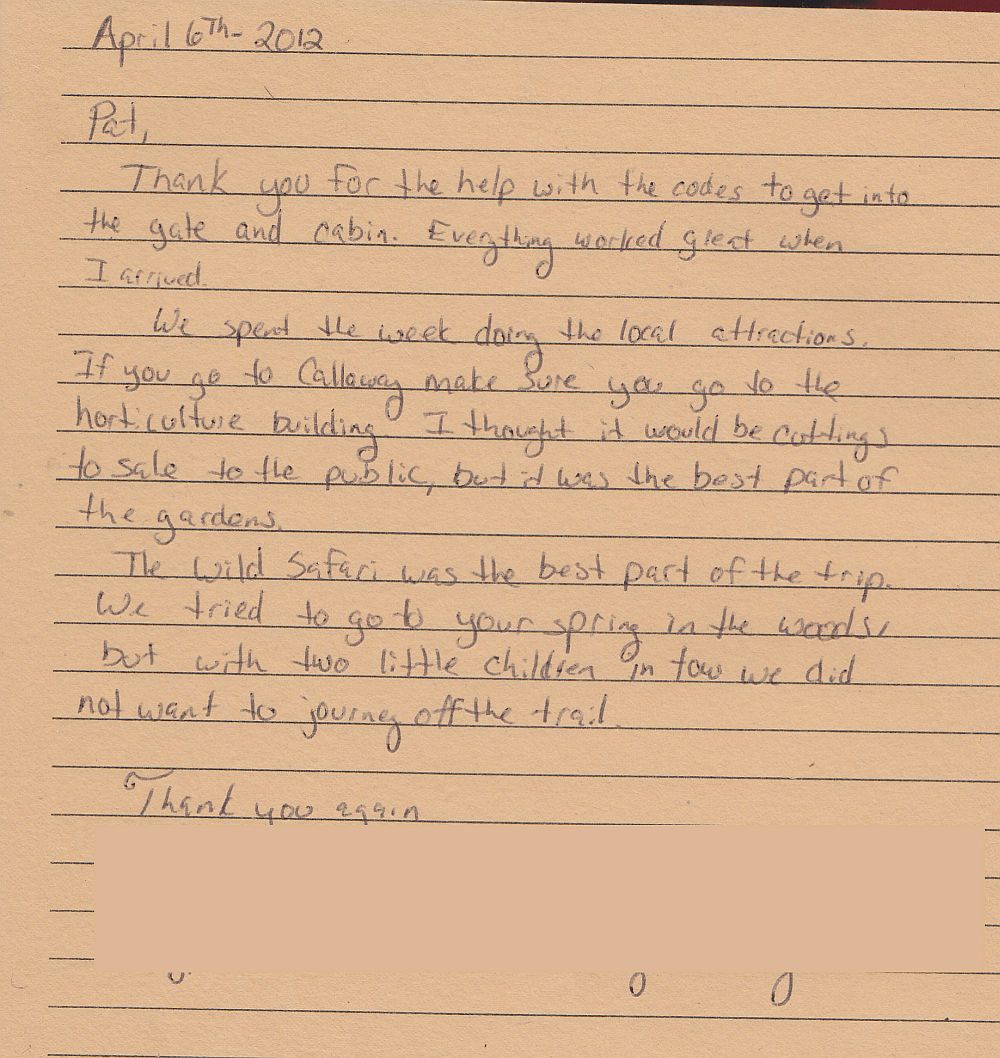 April 6Th- 2012
Pat,
Thank you for the help with the codes to get into
the gate and cabin. Everything worked great when
I arrived.
We spent the week doing the local attractions.
If you go to Callaway make sure you go to the
horticulture building I thought it would be cuttings
to sale to the public, but it was the best part of
the gardens.
The Wild Safari was the best part of the trip.
We tried to go to your spring in the woods,
but with two little children in tow we did
not want to journey off the trail.
Thank you again